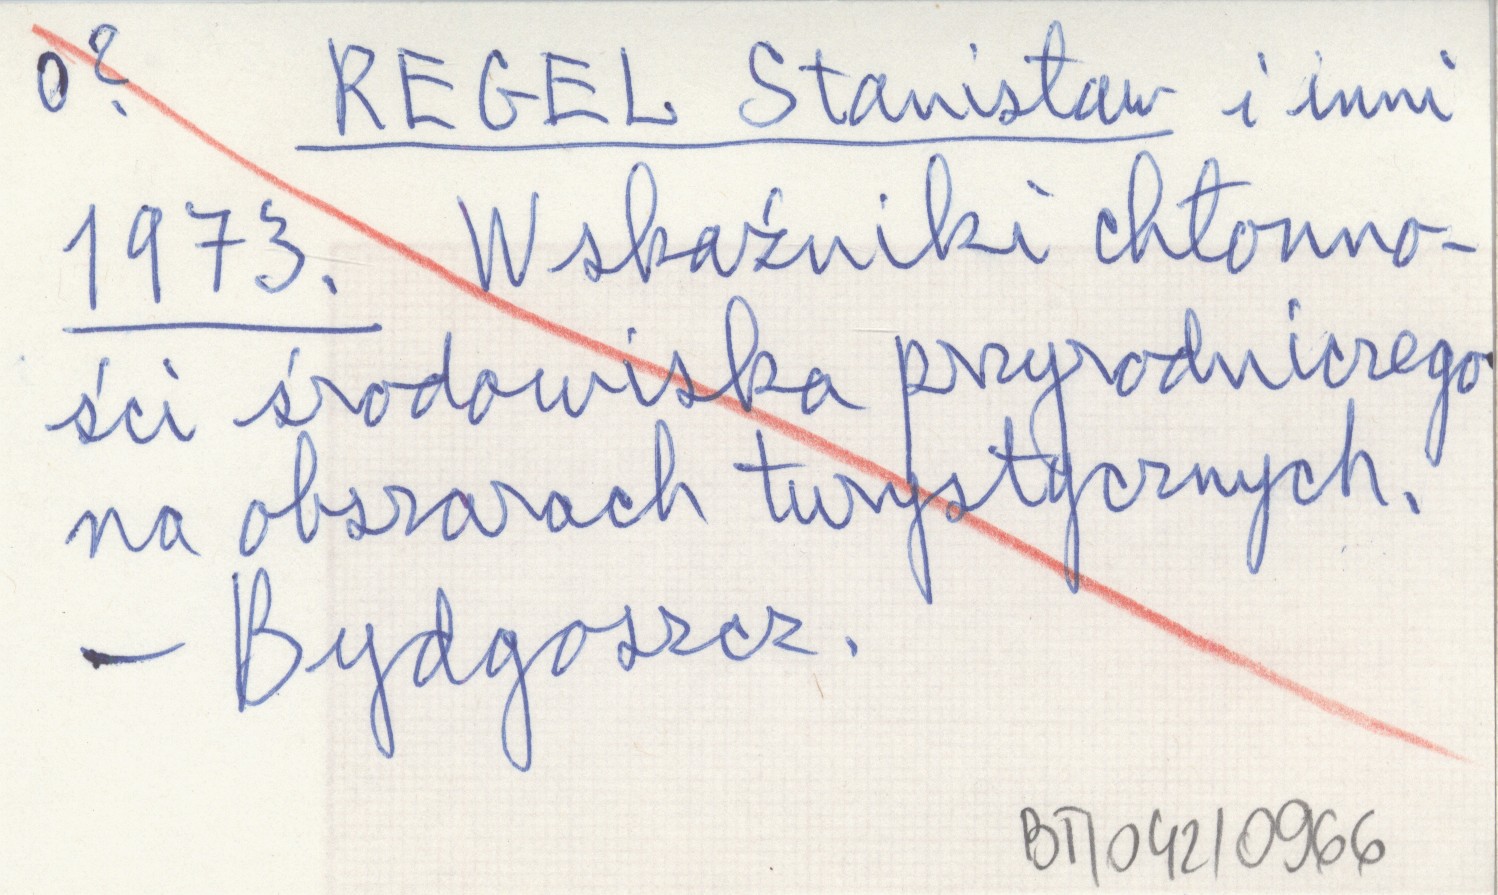 0? REGEL Stanisław i inni
1973. Wskaźniki chłonno-
ści środowiska przyrodniczego
na obszarach turystycznych.
– Bydgoszcz.
BT/042/0966